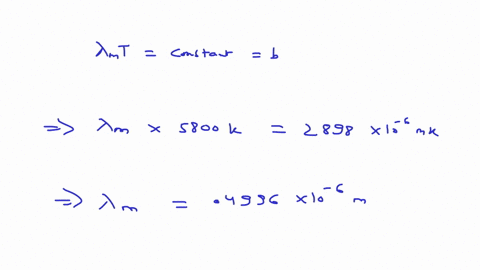 λₘT = constant = b
=> λₘ × 5800 k = 2898 × 10⁻⁶ mk
=> λₘ = .4996 × 10⁻⁶ m